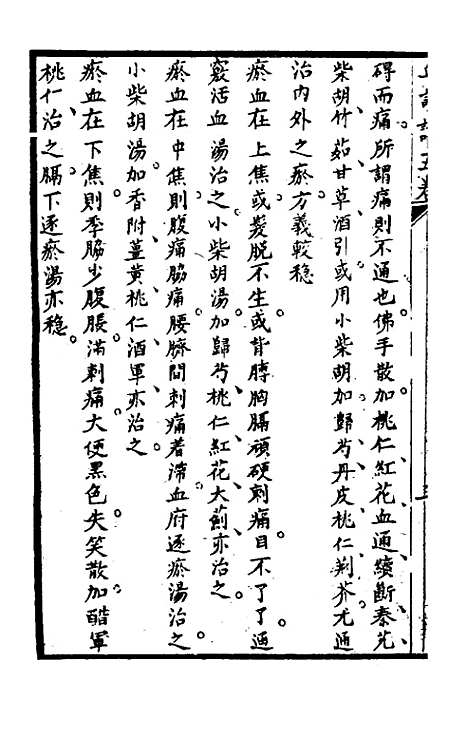 碍而痛。所謂痛則不通也。佛手散加桃仁紅花血通續斷秦艽
柴胡竹茹甘草酒引。或用小柴胡加歸芍丹皮桃仁荆芥尤通
治內外之瘀。方義較穩
瘀血在上焦。或髮脫不生。或背膊胸膈頑硬刺痛。目不了了。通
竅活血湯治之。小柴胡湯加歸芍桃仁紅花大薊亦治之。
瘀血在中焦。則腹痛脇痛。腰臍間刺痛着滯。血府逐瘀湯治之。
小柴胡湯加香附薑黃桃仁酒軍亦治之
瘀血在下焦。則季脇少腹脹滿刺痛。大便黑色。失笑散加醋軍
桃仁治之。膈下逐瘀湯亦穩。